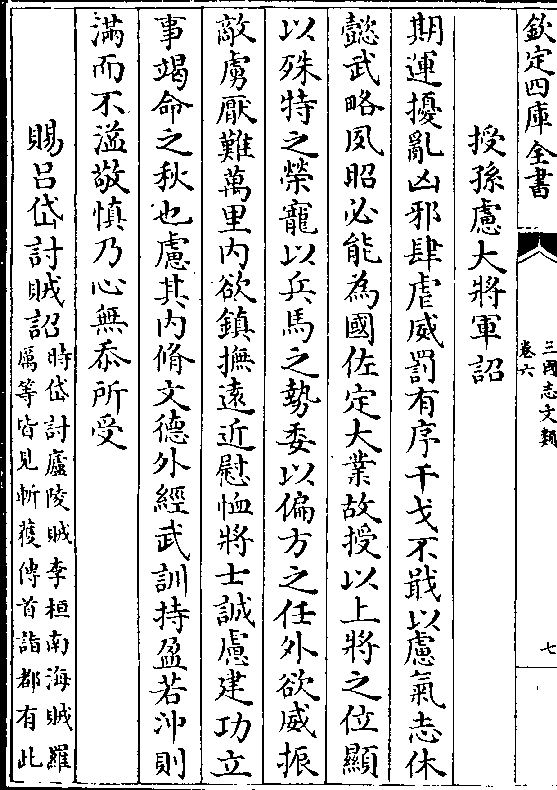 欽定四庫全書
三國志文類
卷六
七
授孫慮大將軍詔
期運擾亂凶邪肆虐威罰有序干戈不戢以慮氣志休
懿武略夙昭必能為國佐定大業故授以上將之位顯
以殊特之榮寵以兵馬之勢委以偏方之任外欲威振
敵虜厭難萬里内欲鎮撫遠近慰恤將士誠慮建功立
事竭命之秋也慮其内脩文德外經武訓持盈若沖則
滿而不溢敬慎乃心無忝所受
賜呂岱討賊詔
時岱討廬陵賊李桓南海賊羅
厲等皆見斬獲傳首詣都有此